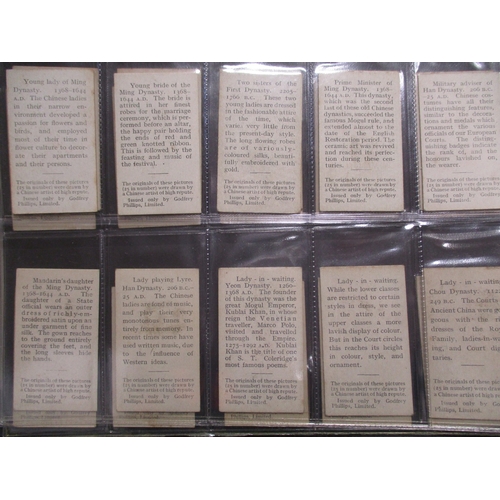 Young lady of Ming
Dynasty. 1368-1644
A.D. The Chinese ladies
in their narrow en-
vironment developed a
passion for flowers and
birds, and employed
much of their time in
flower culture to decor-
ate their apartments
and their persons.
The originals of these pictures
(25 in number) were drawn by
a Chinese artist of high repute.
Issued only by Godfrey
Phillips, Limited.
Young bride of the
Ming Dynasty. 1368-
1644 A.D. The bride is
attired in her finest
robes for the marriage
ceremony, which is per-
formed before an altar,
the happy pair holding
the ends of red and
green knotted ribbon.
This is followed by the
feasting and music of
the festival.
The originals of these pictures
(25 in number) were drawn by
a Chinese artist of high repute.
Issued only by Godfrey
Phillips, Limited.
Two sisters of the
First Dynasty. 2205-
1766 B.C. These two
young ladies are dressed
in the fashionable attire
of the time, which
varies very little from
the present-day style.
The long flowing robes
are of variously-
coloured silks, beauti-
fully embroidered with
gold.
The originals of these pictures
(25 in number) were drawn by
a Chinese artist of high repute.
Issued only by Godfrey
Phillips, Limited.
Prime Minister of
Ming Dynasty. 1368-
1644 A.D. This dynasty,
which was the second
last of these old Chinese
dynasties, succeeded the
furious Mogul rule, and
extended almost to the
date of the English
Restoration period. The
ceramic art was revived
and reached its perfec-
tion during these
centuries.
The originals of these pictures
(25 in number) were drawn by
a Chinese artist of high repute.
Issued only by Godfrey
Phillips, Limited.
Military adviser of
Han Dynasty. 206 B.C.
25 A.D.
The originals of these pictures
(25 in number) were drawn by
a Chinese artist of high repute.
Issued only by Godfrey
Phillips, Limited.
Mandarin's daughter
of the Ming Dynasty.
1368-1644 A.D. The
daughter of a State
official wears an outer
dress of richly-em-
broidered satin upon an
under garment of fine
silk. The gown reaches
to the ground entirely
covering the feet, and
the long sleeves hide
the hands.
The originals of these pictures
(25 in number) were drawn by
a Chinese artist of high repute.
Issued only by Godfrey
Phillips, Limited.
Lady playing Lyre.
Han Dynasty. 206 B.C.-
25 A.D. The Chinese
ladies are fond of music,
and play their very
monotonous tunes en-
tirely from memory. In
recent times some have
used written music, due
to the influence of
Western ideas.
The originals of these pictures
(25 in number) were drawn by
a Chinese artist of high repute.
Issued only by Godfrey
Phillips, Limited.
Lady - in - waiting.
Yuen Dynasty. 1260-
1368 A.D. The founder
of this dynasty was the
great Mogul Emperor,
Kublai Khan, in whose
reign the Venetian
traveller, Marco Polo,
visited and travelled
through the Empire.
1275-1292 A.D. Kublai
Khan is the title of one
of S. T. Coleridge's
most famous poems.
The originals of these pictures
(25 in number) were drawn by
a Chinese artist of high repute.
Issued only by Godfrey
Phillips, Limited.
Lady - in - waiting.
While the lower classes
are restricted to certain
styles in dress, we see
in the attire of the
upper classes a more
lavish display of colour.
But in the Court circles
this reaches its height
in colour, style, and
ornament.
The originals of these pictures
(25 in number) were drawn by
a Chinese artist of high repute.
Issued only by Godfrey
Phillips, Limited.
Lady - in - waiting.
Chou Dynasty.
The Courts
Ancient China were